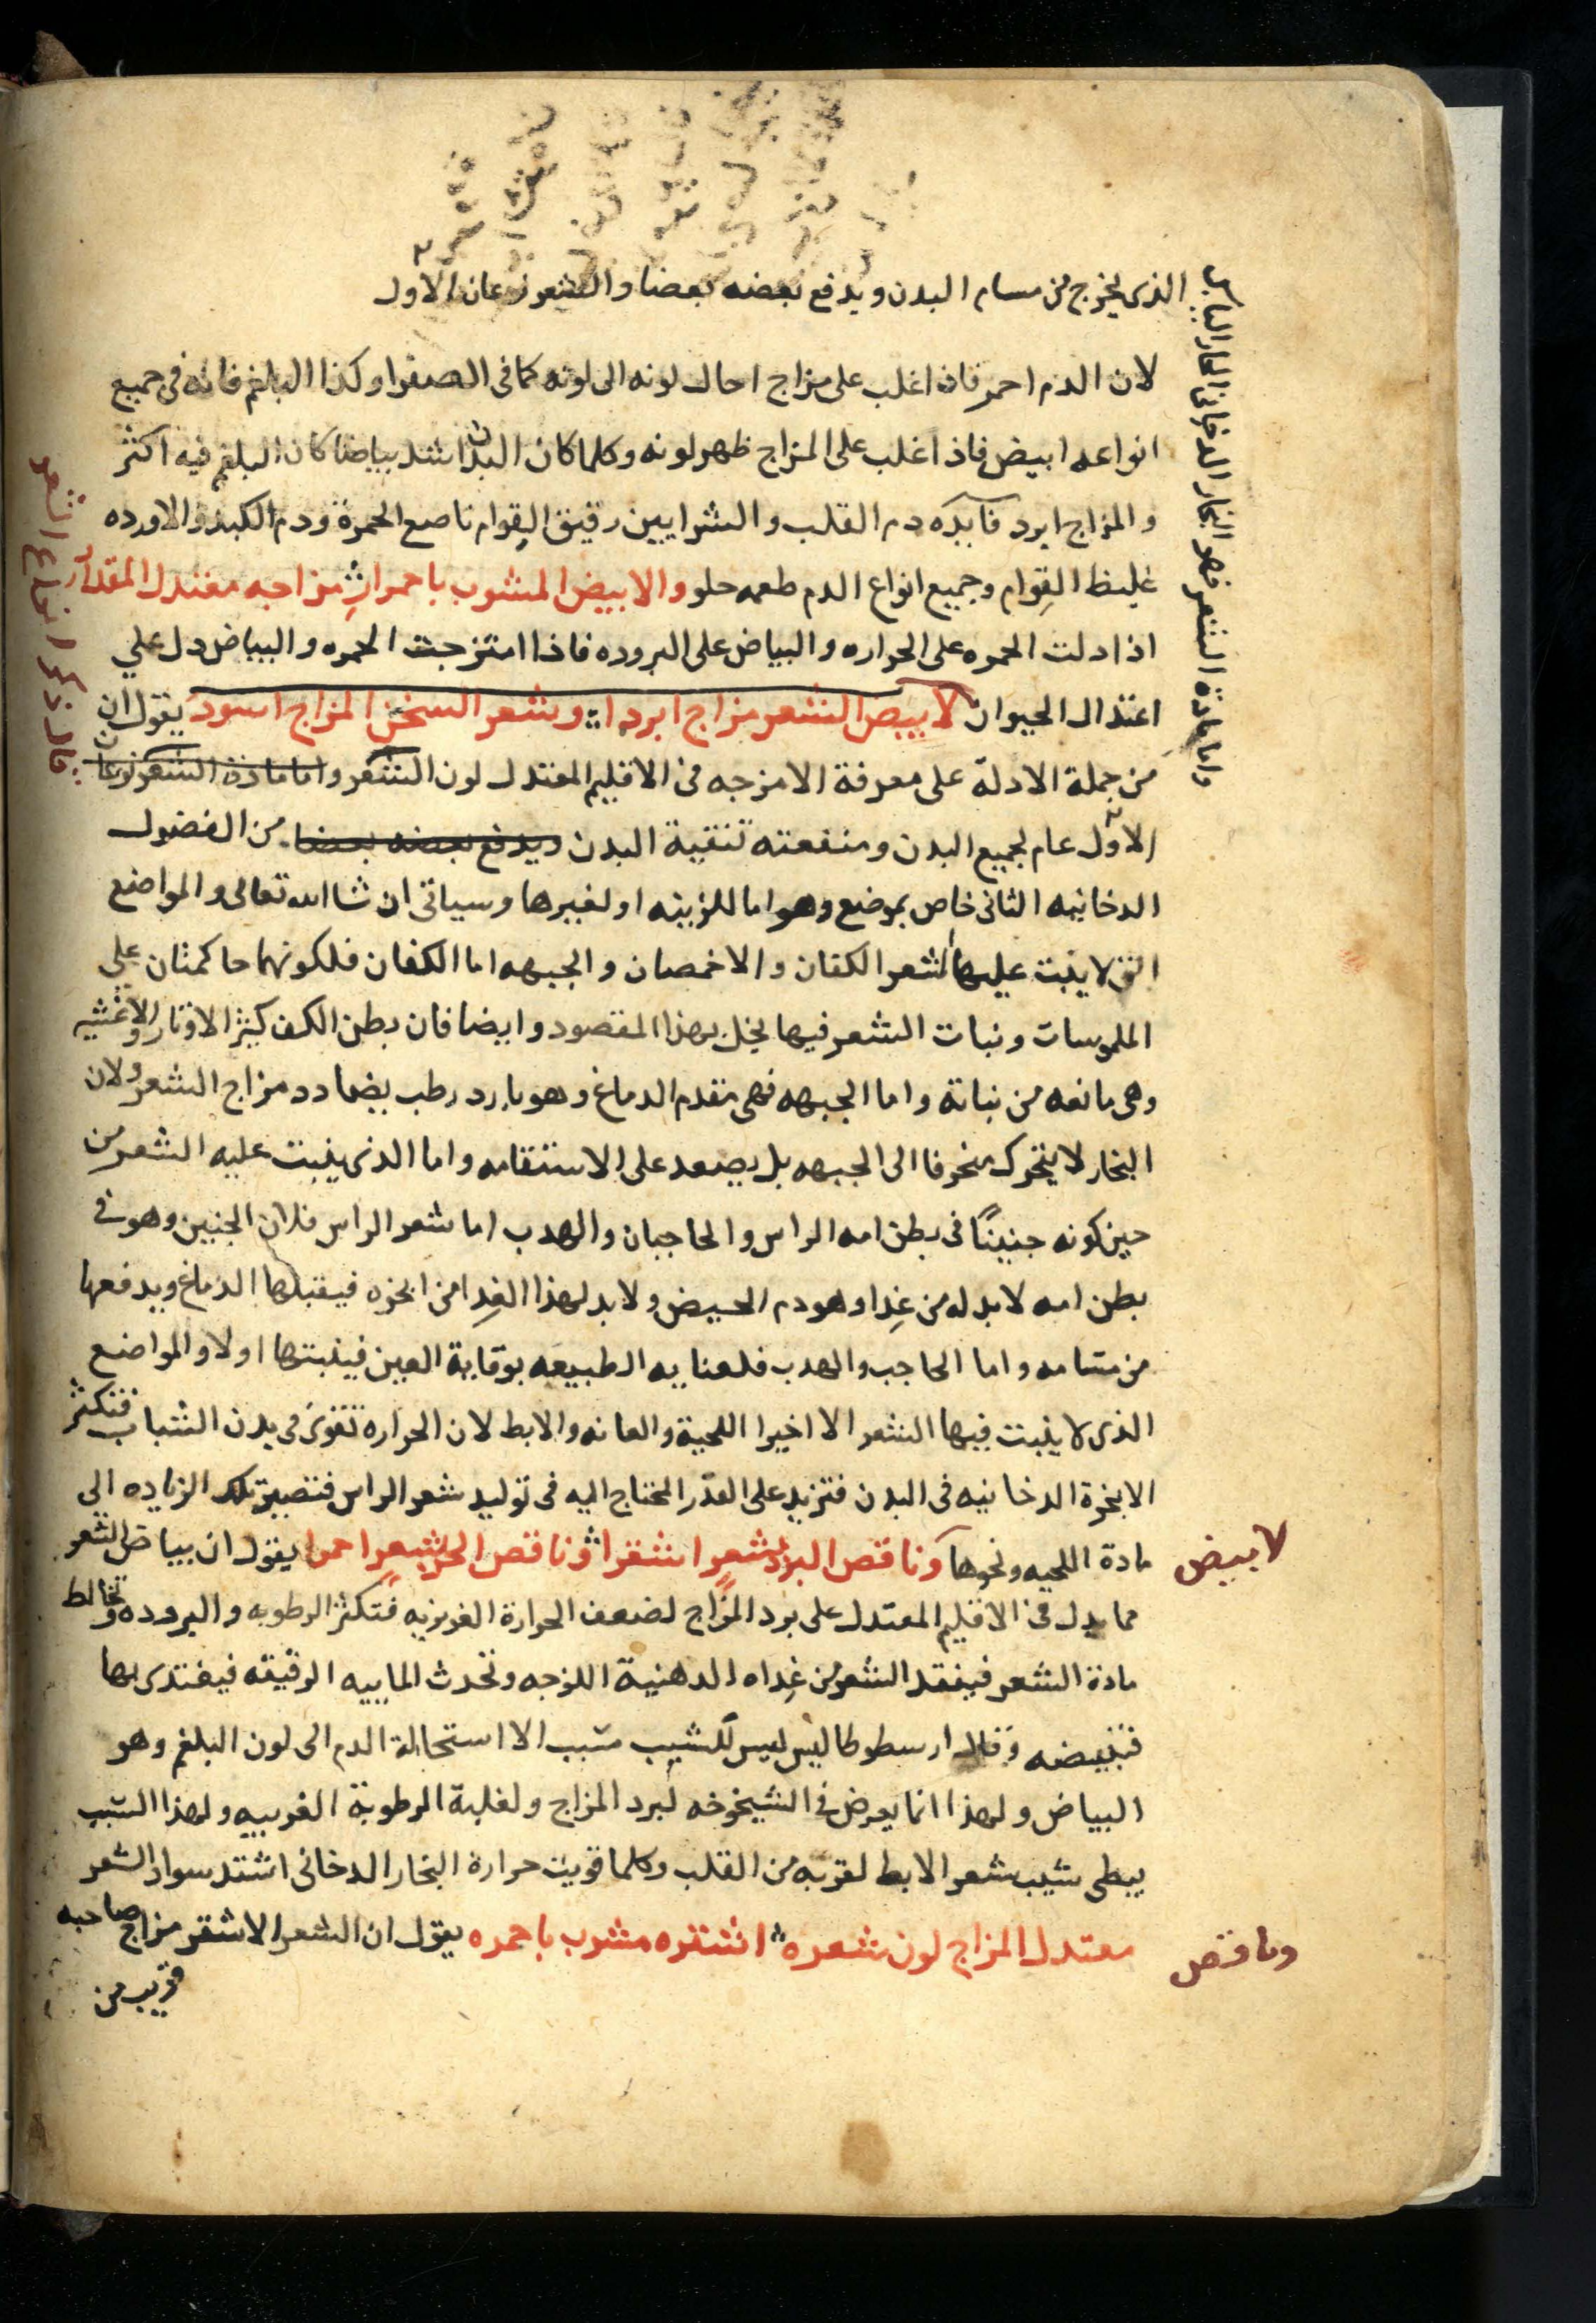 الذى يخرج من مسام البدن ويدفع بعضه بعضا والشعر نوعان الاول
واما مادة الشعر فهو البخار الدخانى الحار اليابس
لان الدم احمر فاذا غلب على مزاج احال لونه الى لونه كما فى الصفرا وكذا البلغم فانه فى جميع
انواعه ابيض فاذا غلب على المزاج ظهر لونه وكلما كان البدن اشد بياضا كان البلغم فيه اكثر
والمزاج ابرد فايده دم القلب والشرايين رقيق القوام ناصع الحمرة ودم الكبد والاورده
غليظ القوام وجميع انواع الدم طعمه حلو والابيض المشوب باحمرار مزاجه معتدل المقدار
اذا دلت الحمره على الحراره والبياض على البروده فاذا امتزجت الحمره والبياض دل على
اعتدال الحيوان لابيض الشعر مزاج ابرد وشعر السخن المزاج اسود يقول ان
من جملة الادلة على معرفة الامزجه فى الاقليم المعتدل لون الشعر واما مادة الشعر نوعان
الاول عام لجميع البدن ومنفعته تنقية البدن ويدفع بعضه بعضا من الفضول
الدخانيه الثانى خاص بموضع وهو اما للزينه او لغيرها وسياتى ان شا الله تعالى والمواضع
التى لا ينبت عليها الشعر الكفان والاخمصان والجبهه اما الكفان فلكونهما حاكمتان على
الملموسات ونبات الشعر فيها يخل بهذا المقصود وايضا فان بطن الكف كثير الاوتار والاغشيه
وهى مانعه من نباته واما الجبهه فهى مقدم الدماغ وهو بارد رطب يضادد مزاج الشعر ولان
البخار لا يتحرك منحرفا الى الجبهه بل يصعد على الاستقامه واما الذى ينبت عليه الشعر من
حين كونه جنينًا فى بطن امه الراس والحاجبان والهدب اما شعر الراس فلان الجنين وهو فى
بطن امه لا بد له من غذا وهو دم الحيض ولا بد لهذا الغذا من ابخره فيقبلها الدماغ ويدفعها
من مسامه واما الحاجب والهدب فلعنايه الطبيعه بوقاية العين فينبتها اولا والمواضع
الذى لا ينبت فيها الشعر الا اخيرا اللحية والعانه والابط لان الحراره تقوى فى بدن الشباب فتكثر
الابخرة الدخانيه فى البدن فتزيد على القدر المحتاج اليه فى توليد شعر الراس فتصير تلك الزياده الى
مادة اللحيه ونحوها وناقص البرد بشعر اشقرا وناقص الحر بشعر احمرا يقول ان بياض الشعر
لابيض
مما يدل فى الاقليم المعتدل على برد المزاج لضعف الحرارة الغريزيه فتكثر الرطوبه والبروده وتخالط
مادة الشعر فيفقد الشعر من غذاه الدهنية اللزجه وتحدث الماييه الرقيقه فيغتدى بها
فتبيضه وقال ارسطوطاليس ليس للشيب سبب الا استحالة الدم الى لون البلغم وهو
البياض ولهذا انما يعرض فى الشيخوخه لبرد المزاج ولغلبة الرطوبة الغريبيه ولهذا السبب
يبطى شيب شعر الابط لقربه من القلب وكلما قويت حرارة البخار الدخانى اشتد سواد الشعر
معتدل المزاج لون شعره اشقره مشرب باحمره يقول ان الشعر الاشقر مزاج صاحبه
وناقص
قريب من
قال ذكر انواع الشعر